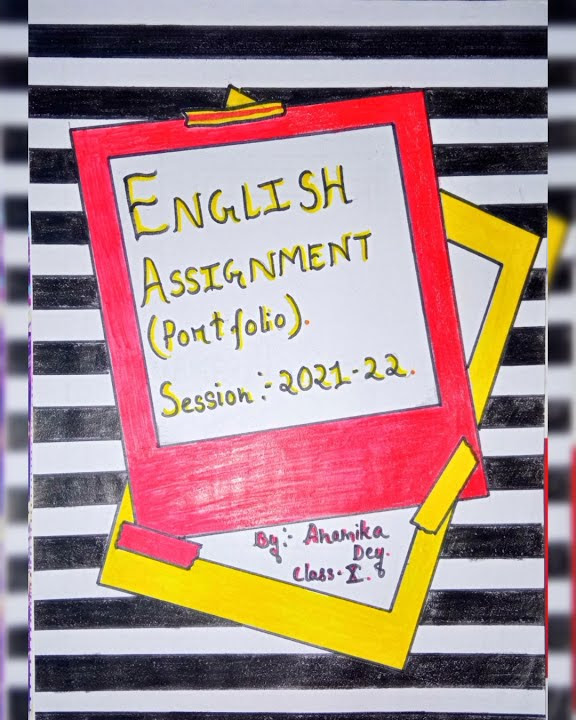 ENGLISH
ASSIGNMENT
(Portfolio).
Session:-2021-22.
By:- Anamika
Dey.
Class-X.